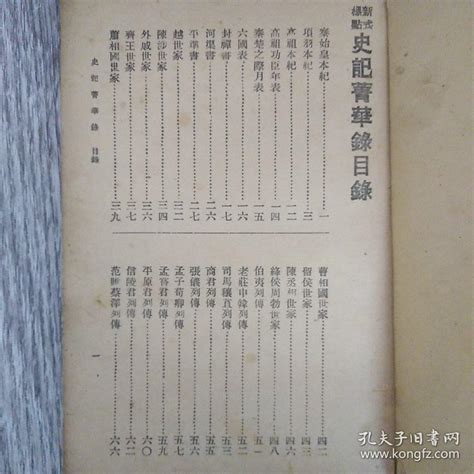 新式標點
史記菁華錄目錄
秦始皇本紀……一
項羽本紀……三
高祖本紀……一二
高祖功臣年表……一四
秦楚之際月表……一五
六國表……一六
封禪書……一七
河渠書……二六
平準書……二七
越世家……三二
陳涉世家……三四
外戚世家……三六
齊王世家……三八
蕭相國世家……三九
曹相國世家……四二
留侯世家……四三
陳丞相世家……四六
絳侯周勃世家……四八
伯夷列傳……五一
老莊申韓列傳……五二
司馬穰苴列傳……五三
商君列傳……五五
張儀列傳……五六
孟子荀卿列傳……五七
孟嘗君列傳……五九
平原君列傳……六〇
信陵君列傳……六二
范雎蔡澤列傳……六六
史記菁華錄 目錄
一
孔夫子旧书网
kongfz.com